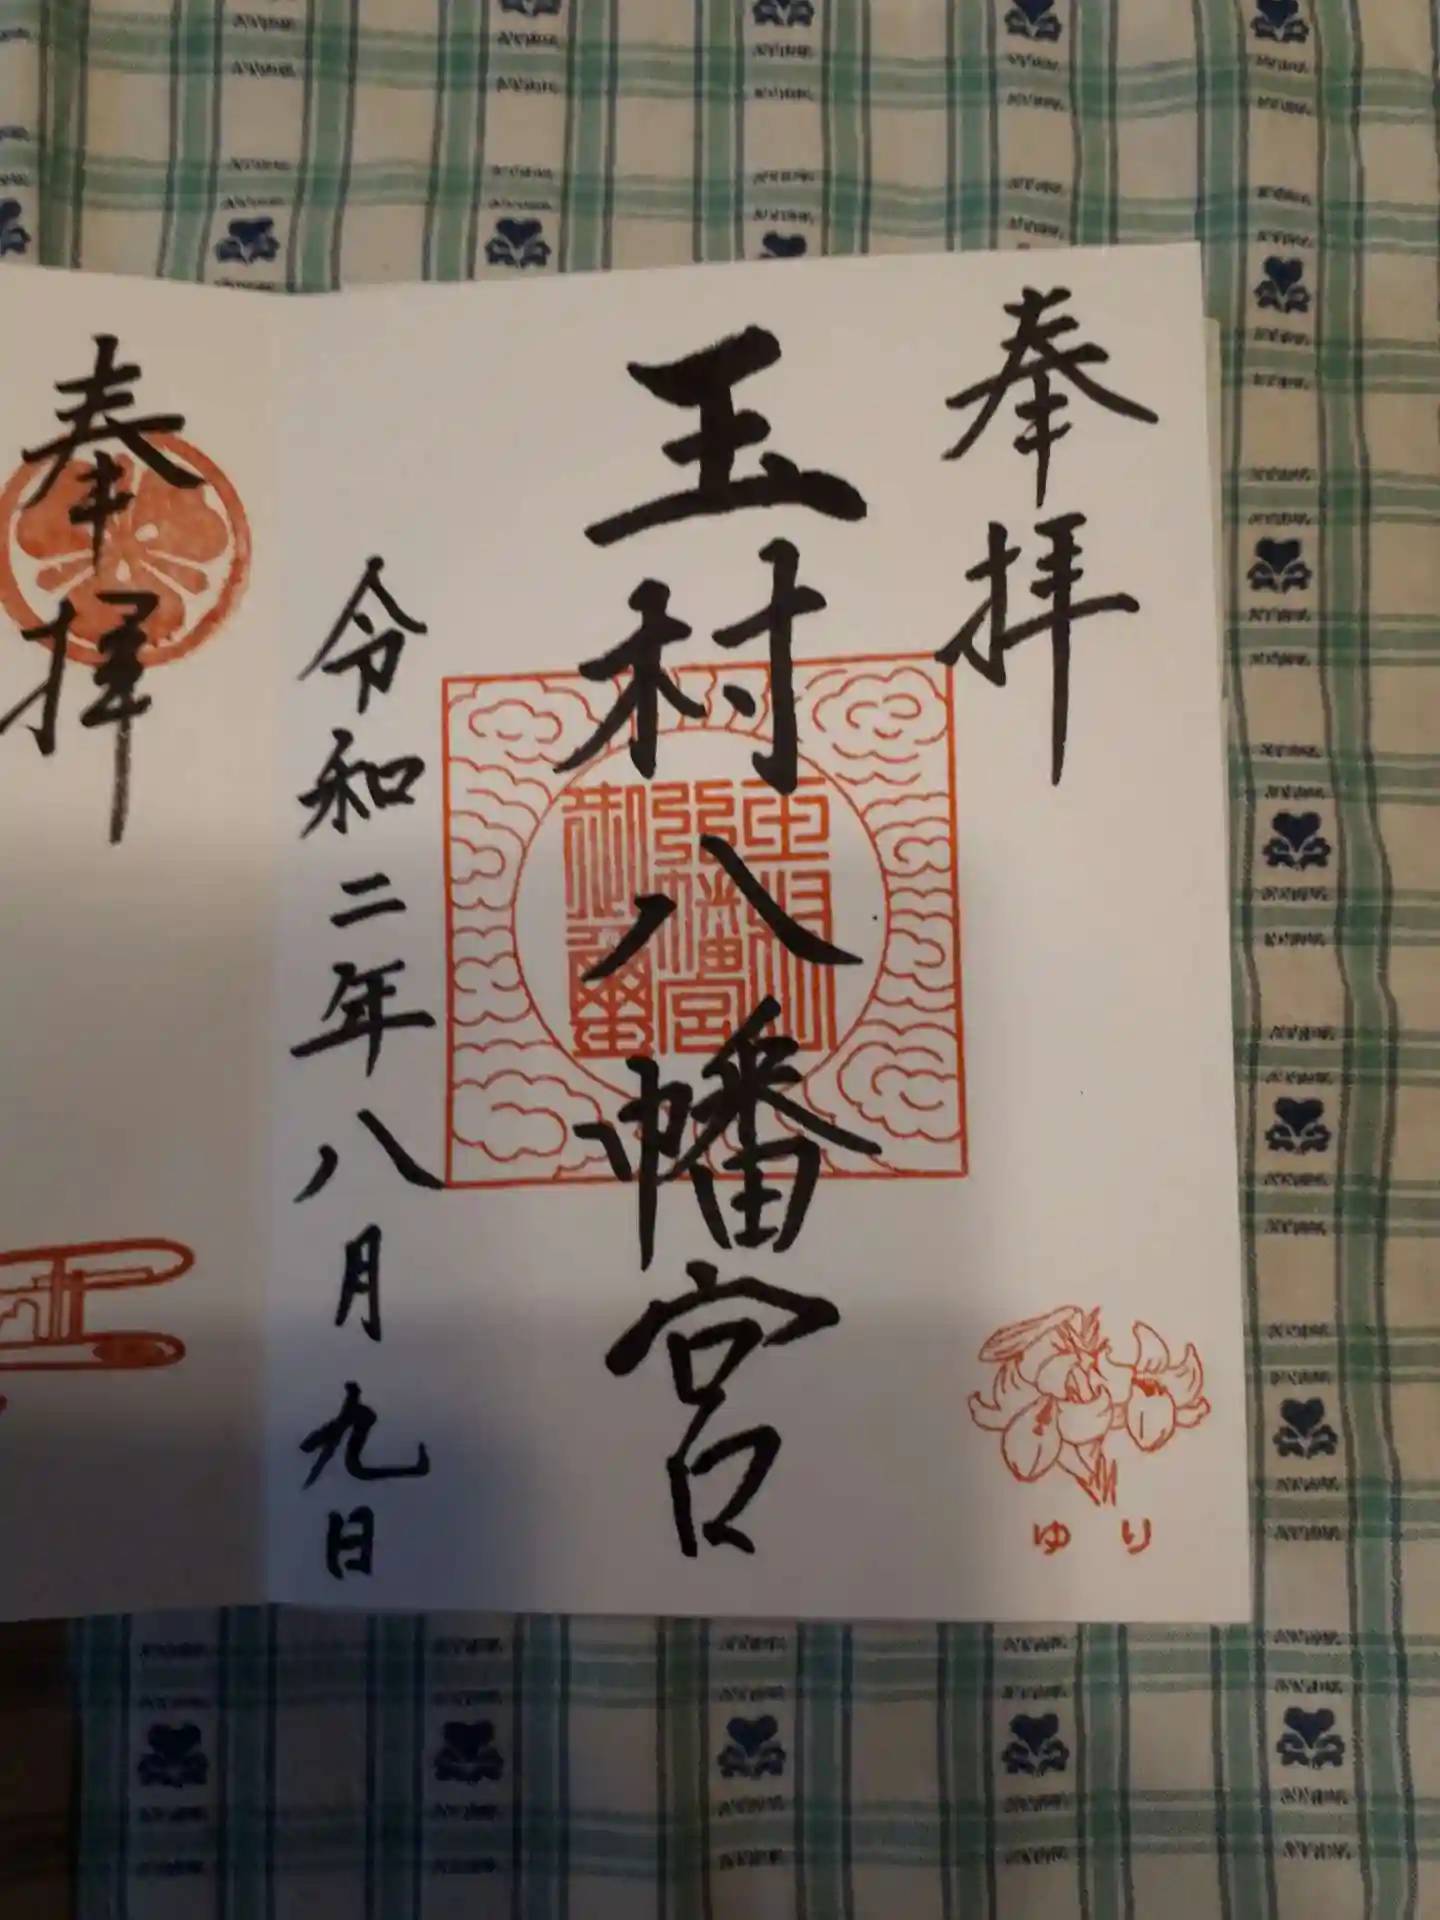 奉拝
玉村八幡宮
令和二年八月九日
玉村
八幡宮
御璽
ゆり
奉拝